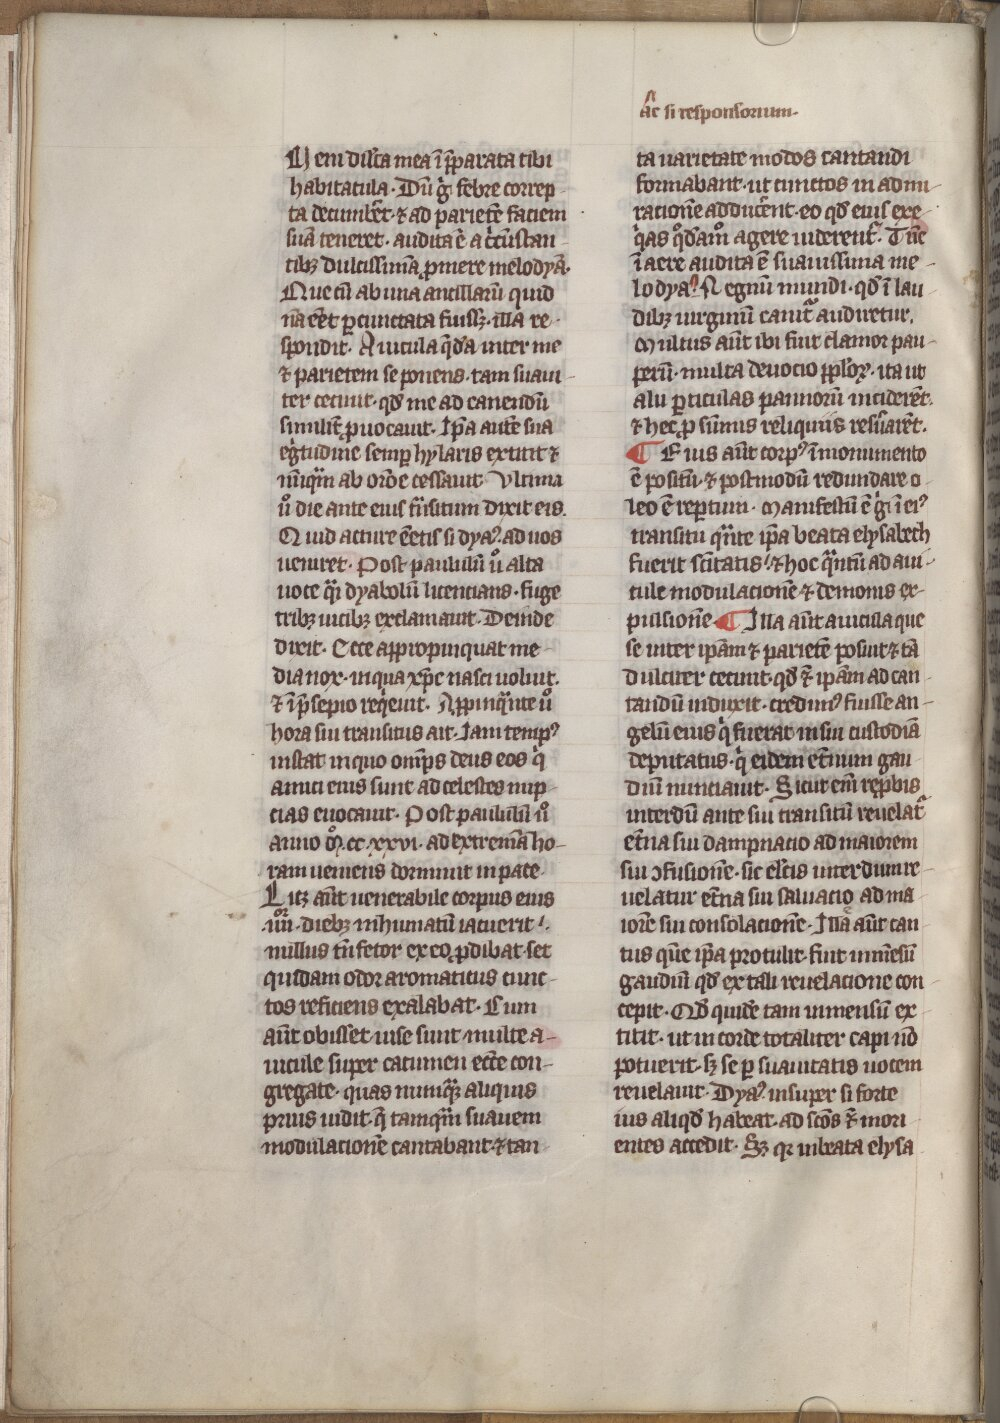 Ac si responsorium.
Veni dilcta mea ī p̄parata tibi
habitacula. Dū gͥ febre correp-
ta decumbēt. ⁊ ad parietē faciem
suā teneret. audita ē a cͥcūstan-
tibꝫ dulcissimā ꝓmere melodyā.
Que cū ab una ancillarū quid
nā eēt ꝑcunctata fuissꝫ. illa re-
spondit. Auicula q̄dā inter me
⁊ parietem se ponens. tam suaui-
ter cecinit. qd̄ me ad canendū
similit̄ ꝓuocauit. Ip̄a autē sua
egͥtudīe semꝑ hylaris extitit ⁊
nūq̄m ab orōe cessauit. Vltima
uͦ die ante eius t̄nsitum dixit eis.
Quid acture eētis si dyaꝰ ad uos
ueniret. Post paululū uͦ alta
uoce q̄i dyabolū licencians. fuge
tribꝫ uicibꝫ exclamauit. Deinde
dixit. Ecce appropinquat me-
dia nox. in qua xp̄c nasci uoluit.
⁊ ī p̄sepio reqͥeuit. Appinq̄nte uͦ
hora sui transitus ait. Iam tempꝰ
instat in quo om̄ps deus eos qͥ
amici eius sunt ad celestes nup-
cias euocauit. Post paululū uͦ
anno dͦ. m̊.cc.xxvi. ad extremā ho-
ram ueniens dormiuit in pace.
Licꝫ aūt uenerabile corpus eius
.iiiiᵒʳ. diebꝫ inhumatū iacuerit.
nullus tn̄ fetor ex eo ꝓdibat. set
quidam odor aromaticus cunc-
tos reficiens exalabat. Cum
aūt obisset. uise sunt multe a-
uicule super cacumen ecc̄e con-
gregate. quas numq̄ꝫ aliquis
prius uidit. q̄ tamq̄m suauem
modulacionē cantabant. ⁊ tan-
ta uarietate modos cantandi
formabant. ut cunctos in admi-
racionē adducēnt. eo qd̄ eius exe-
qͥas qͦdāmͦ agere uiderent᷑. Tūc
ī aere audita ē suauissima me-
lodya. Regnū mundi. qd̄ ī lau-
dibꝫ uirginū canit᷑ audiretur.
Multus aūt ibi fuit clamor pau-
perū. multa deuocio pplōꝝ. ita ut
alii ꝑticulas pannorū incideret̄.
⁊ hec ꝓ sūmis reliquiis res̄uarēt.
¶ Eius aūt corpꝰ ī monumento
ē positū. ⁊ postmodū redundare o-
leo ē reꝑtum. Manifestū ē gͥ ī eiꝰ
transitu q̄nte ip̄a beata elysabeth
fuerit scītatis. ⁊ hoc q̄ntū ad aui-
cule modulacionē ⁊ demonis ex-
pulsionē. ¶ Illa aūt auicula que
se inter ip̄am ⁊ parietē posuit ⁊ tā
dulciter cecinit. qd̄ ⁊ ip̄am ad can-
tandū induxit. credimꝰ fuisse an-
gelū eius qͥ fuerat in sui custodiā
deputatus. qͥ eidem et̄num gau-
diū nunciauit. Sicut em̄ rep̱bis
interdū ante sui transitū reuelat᷑
et̄na sui dampnacio ad maiorem
sui ↄfusionē. sic elc̄is interdum re-
uelatur et̄na sui saluacio ad ma-
iorē sui consolacionē. Illā aūt can-
tus quē ip̄a protulit. fuit inmēsū
gaudiū qd̄ ex tali reuelacione con-
cepit. Qd̄ quidē tam inmensū ex-
titit. ut in corde totaliter capi nō
potuerit. sꝫ se ꝑ suauitatis uocem
reuelauit. Dyaꝰ insuper si forte
ius aliqd̄ habeat. ad sc̄os ⁊ mori-
entes accedit. Sꝫ qr in beata elysa